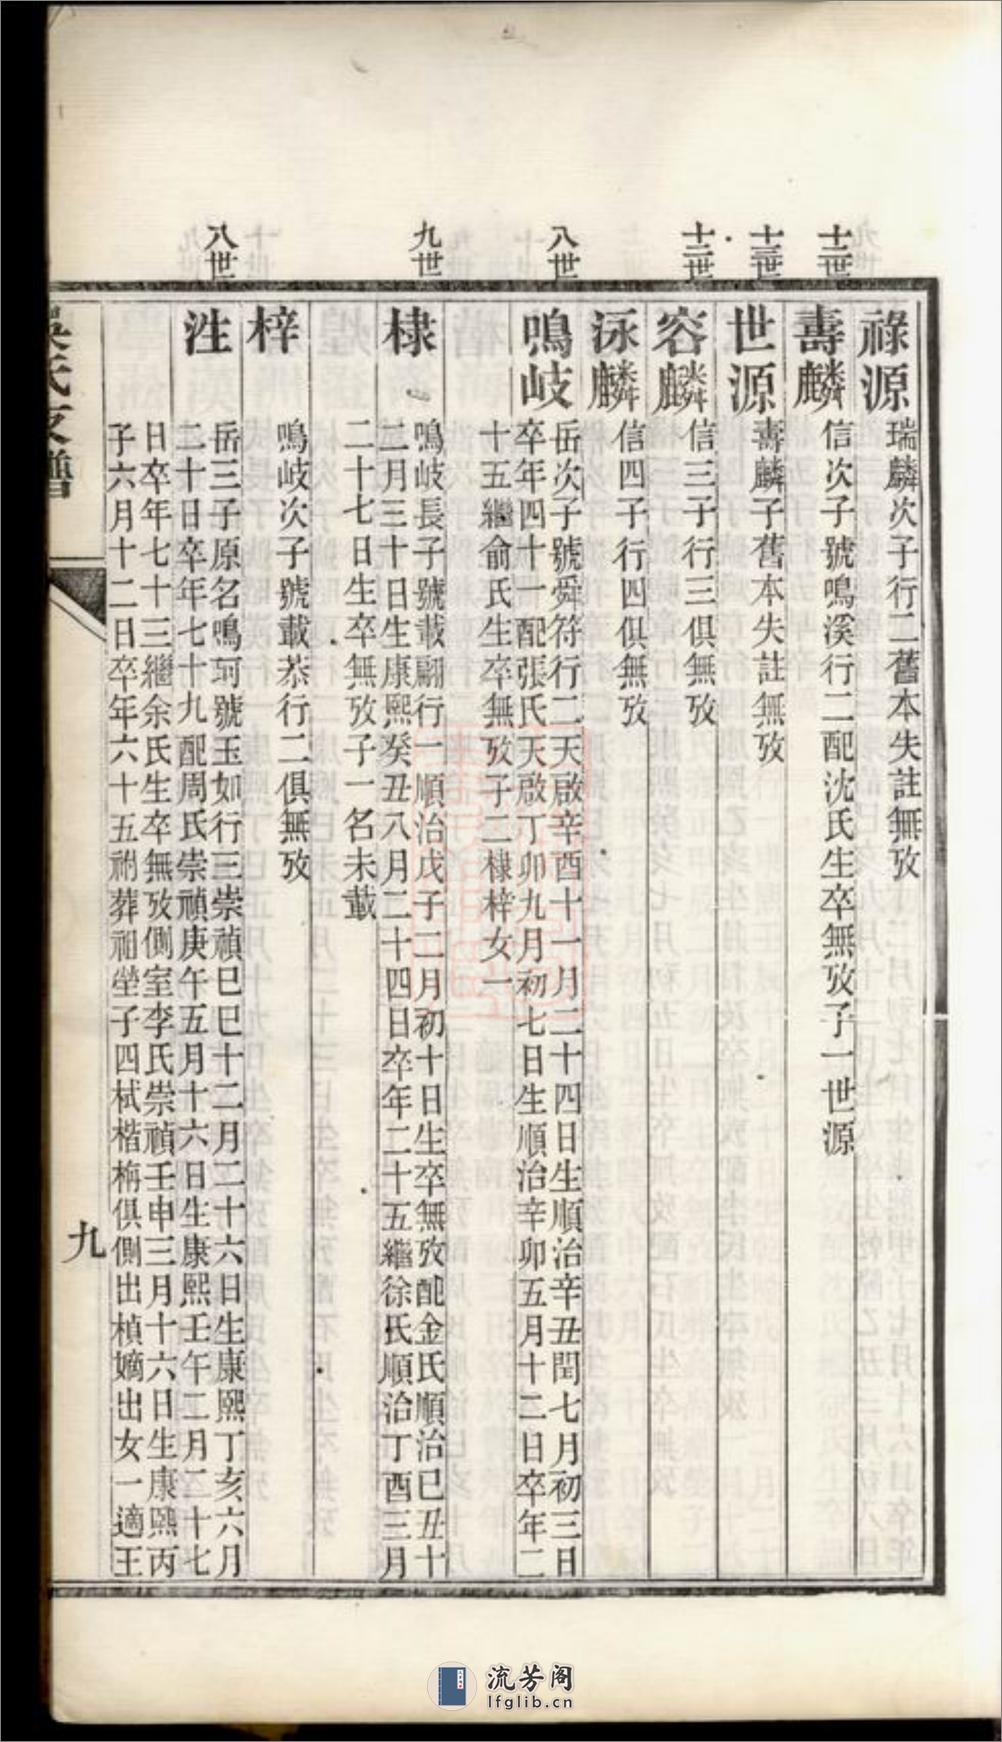 十三世
祿源
瑞麟次子行二舊本失註無攷
壽麟
信次子號鳴溪行二配沈氏生卒無攷子一世源
十三世
世源
壽麟子舊本失註無攷
十二世
容麟
信三子行三俱無攷
泳麟
信四子行四俱無攷
八世
鳴岐
岳次子號舜符行二天啟辛酉十一月二十四日生順治辛丑閏七月初三日
卒年四十一配張氏天啟丁卯九月初七日生順治辛卯五月十二日卒年二
十五繼俞氏生卒無攷子二棣梓女一
九世
棣
鳴岐長子號載翩行一順治戊子二月初十日生卒無攷配金氏順治己丑十
二月三十日生康熙癸丑八月二十四日卒年二十五繼徐氏順治丁酉三月
二十七日生卒無攷子一名未載
梓
鳴岐次子號載恭行二俱無攷
八世
泩
岳三子原名鳴珂號玉如行三崇禎己巳十二月二十六日生康熙丁亥六月
二十日卒年七十九配周氏崇禎庚午五月十六日生康熙壬午二月二十七
日卒年七十三繼余氏生卒無攷側室李氏崇禎壬申三月十六日生康熙丙
子六月十二日卒年六十五祔葬祖塋子四栻楷栴俱側出楨嫡出女一適王
吳氏支譜
九
流芳阁
lfglib.cn